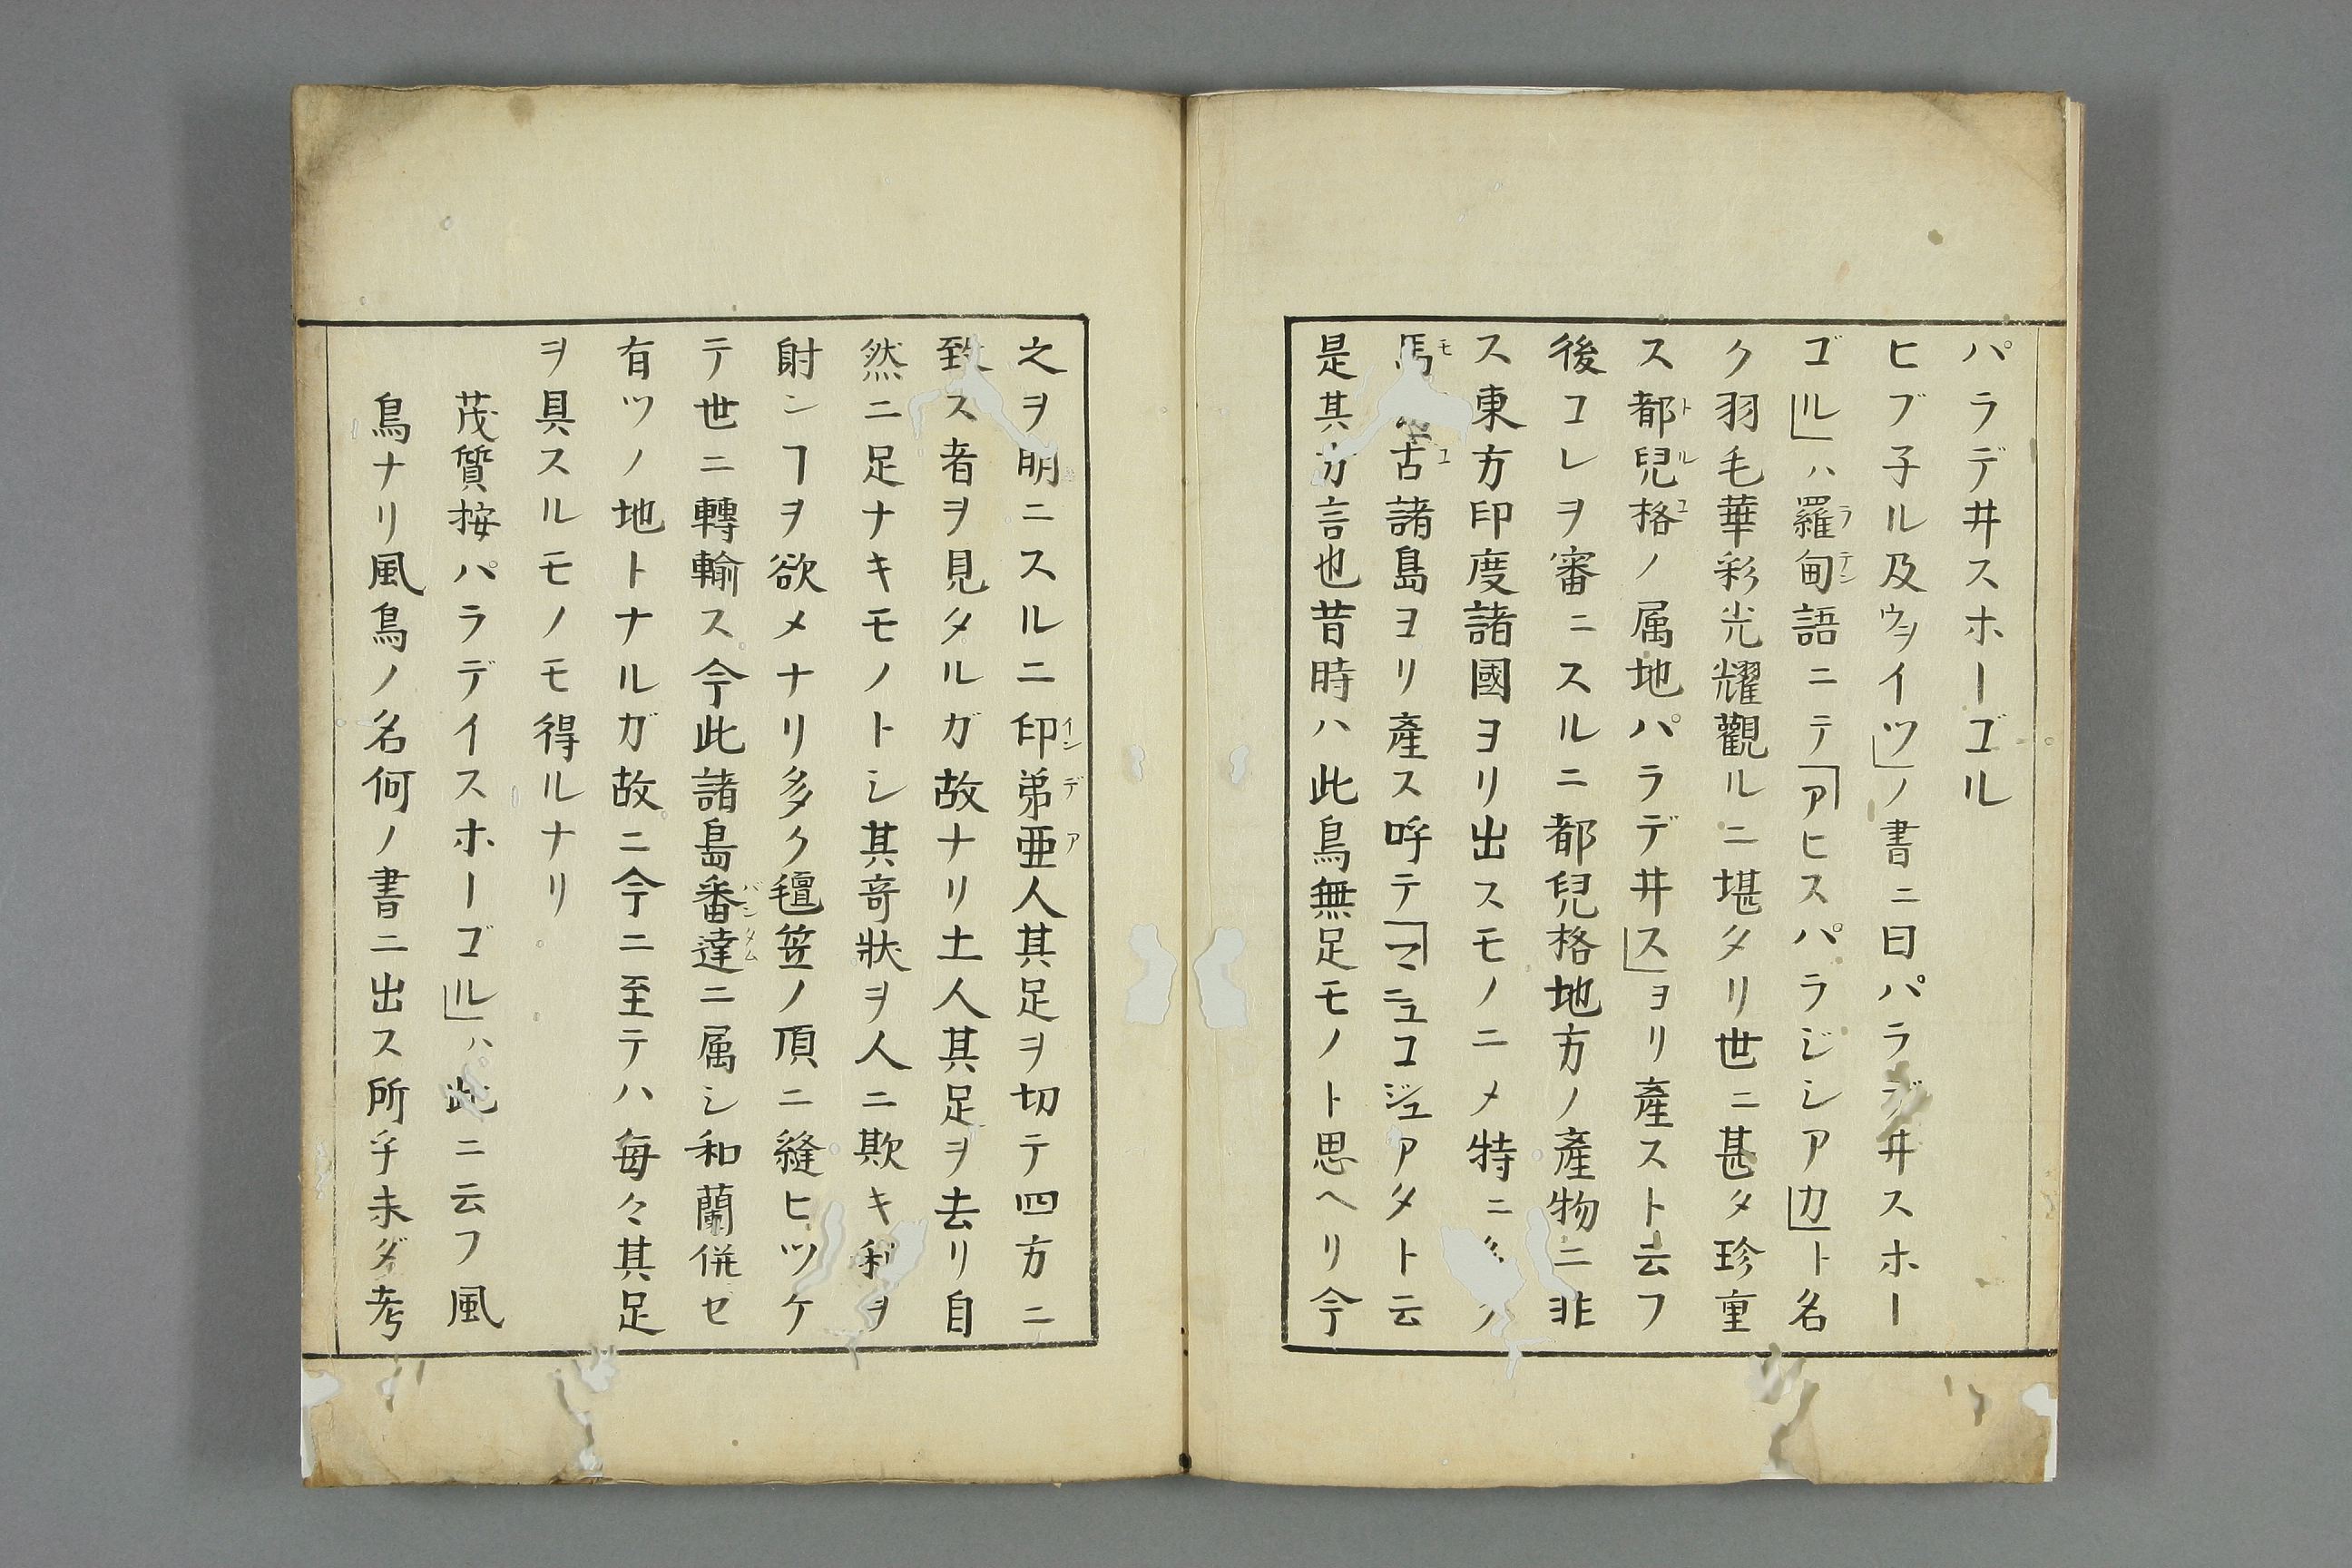 パラデ井スホーゴル
ヒブ子ル及ウヲイツ」ノ書ニ曰パラジ井スホー
ゴル」ハ羅甸語ニテ「アヒスパラジシアカ」ト名
ク羽毛華彩光耀觀ルニ堪タリ世ニ甚タ珍重
ス都兒格ノ属地パラデ井ス」ヨリ產スト云フ
後コレヲ審ニスルニ都兒格地方ノ產物ニ非
ス東方印度諸國ヨリ出スモノニメ特ニ
馬 古諸島ヨリ產ス呼テ「マニュコジュアタト云
是其方言也昔時ハ此鳥無足モノト思ヘリ今
之ヲ明ニスルニ印弟亜人其足ヲ切テ四方ニ
致ス者ヲ見タルガ故ナリ土人其足ヲ去リ自
然ニ足ナキモノトシ其竒狀ヲ人ニ欺キ利ヲ
射ンヿヲ欲メナリ多ク氊笠ノ頂ニ縫ヒツケ
テ世ニ轉輸ス今此諸島番達ニ属シ和蘭併セ
有ツノ地トナルガ故ニ今ニ至テハ每々其足
ヲ具スルモノモ得ルナリ
茂質按パラデイスホーゴル」ハ此ニ云フ風
鳥ナリ風鳥ノ名何ノ書ニ出ス所乎未ダ考